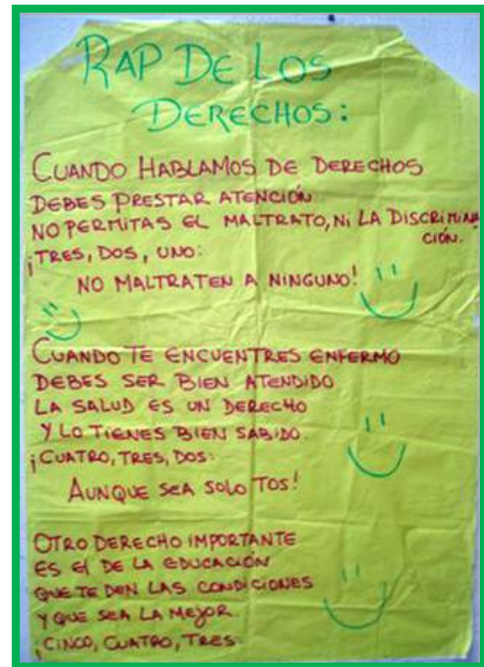 RAP DE LOS
DERECHOS:
CUANDO HABLAMOS DE DERECHOS
DEBES PRESTAR ATENCIÓN
NO PERMITAS EL MALTRATO, NI LA DISCRIMINA
CIÓN.
¡TRES, DOS, UNO:
NO MALTRATEN A NINGUNO!
CUANDO TE ENCUENTRES ENFERMO
DEBES SER BIEN ATENDIDO
LA SALUD ES UN DERECHO
Y LO TIENES BIEN SABIDO.
¡CUATRO, TRES, DOS:
AUNQUE SEA SOLO TOS!
OTRO DERECHO IMPORTANTE
ES El DE LA EDUCACIÓN
QUE TE DEN LAS CONDICIONES
Y QUE SEA LA MEJOR.
¡CINCO, CUATRO, TRES: